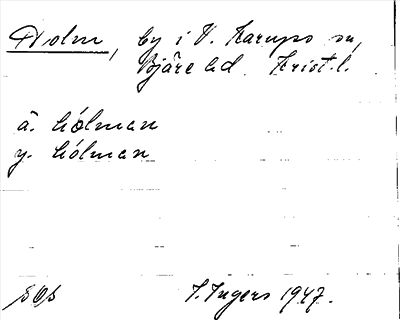 Holm, by i V. Karups sn,
Bjäre hd. Krist.l.
ä. hólman
y. hólman
I. Ingers 1947.